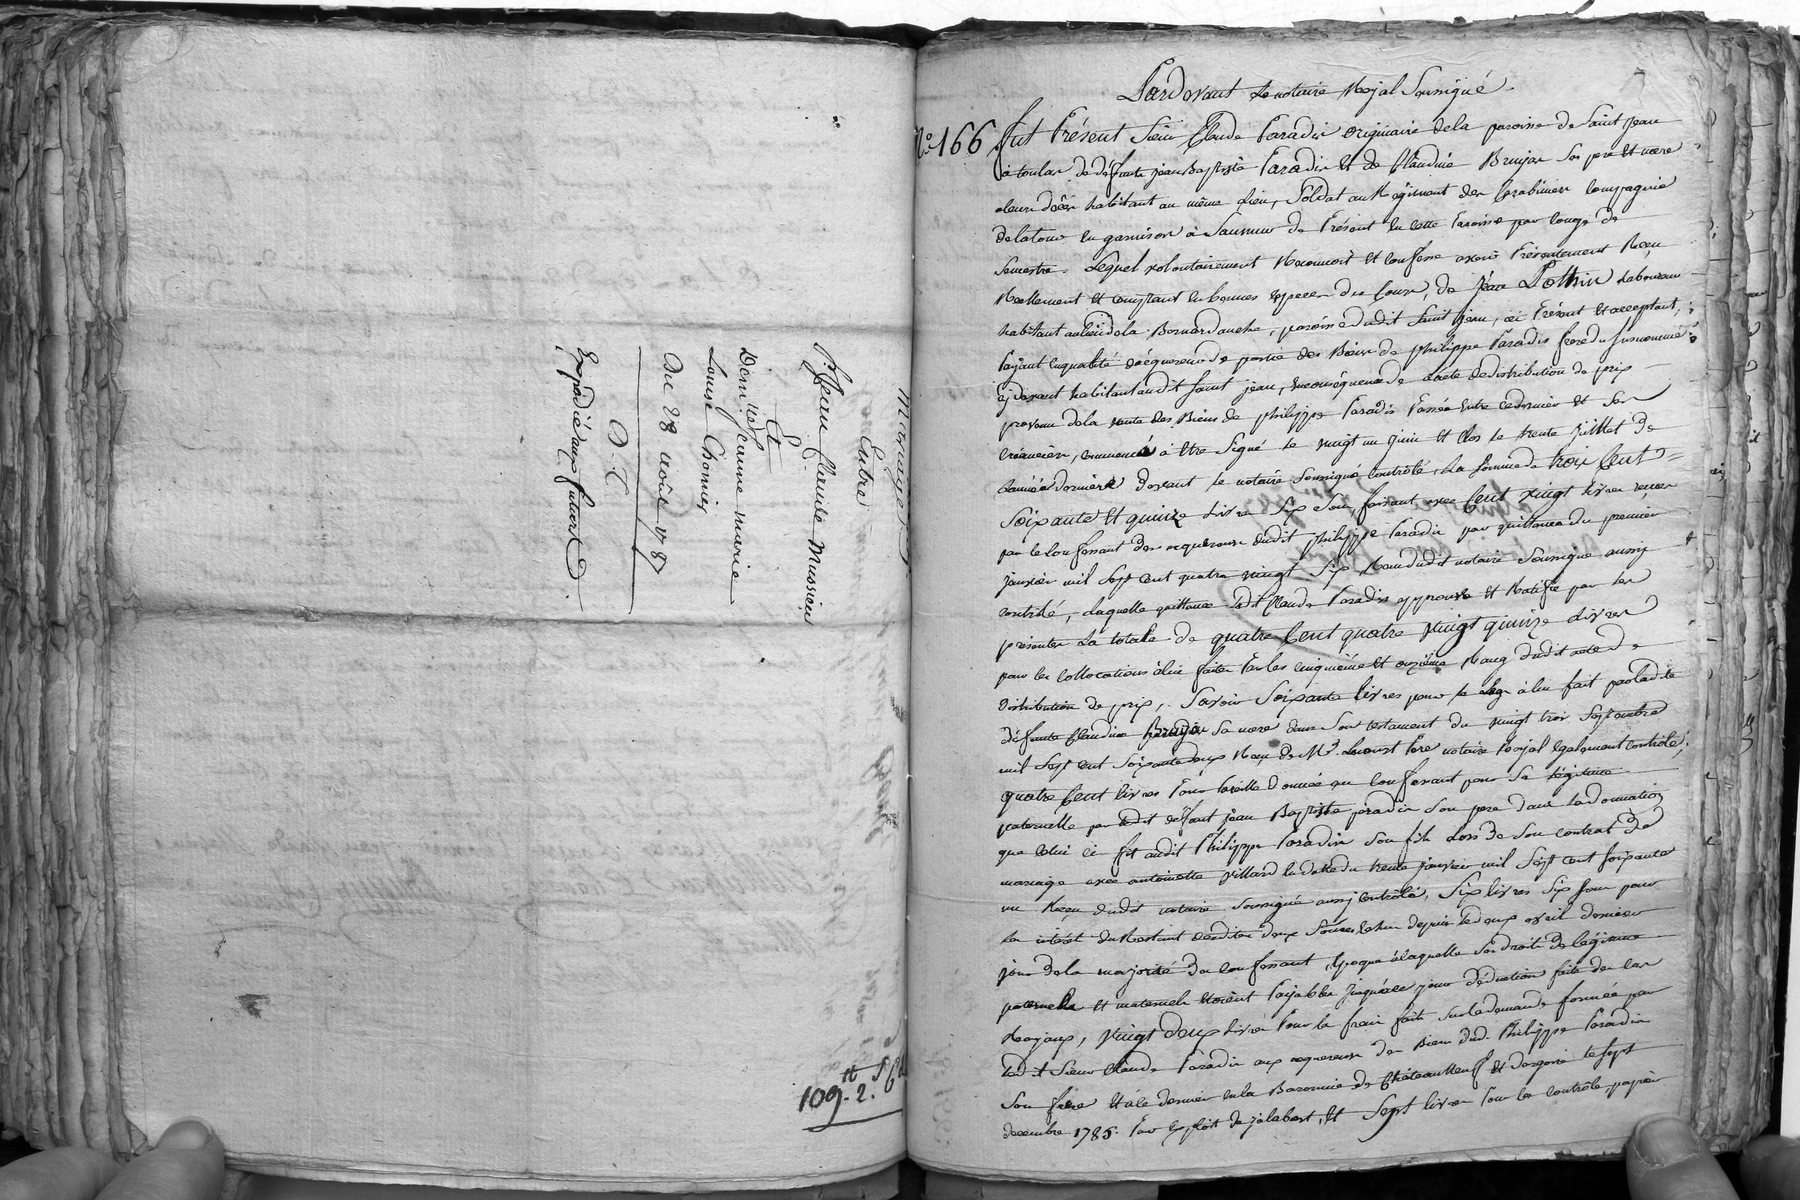 Mariage
Entre
Sr. Jean Claude Mussieu
Et
Demlle jeanne marie
Louise Chomier
Du 28 août 1787
D. C
Expédié aux futurs
109tt. 2s. 6d
Pardevant Le notaire Royal Soussigné
No. 166 fut Présent Sieur Claude Paradis originaire dela paroisse de Saint jean
à toulas de défunts jean Baptiste Paradis et de Claudine Bruyas Ses pere et mere
aleur décès habitant au même Lieu, Soldat au Régiment des Carabiniers Compagnie
delatour En garnison à Saumur de Présent En cette Paroisse par Congé de
Semestre. Lequel volontairement Reconnoit et Confesse avoir Présentement Reçu
Réellement et comptant En bonnes Especes du Cours, de jean Pothin Laboureur
habitant aulieu dela Bernardauche, paroisse dudit Saint jean, ici Présent et acceptant,
Payant Enqualité dacquereur de partie des Biens de Philippe Paradis frere du Susnommé
cydevant habitant audit Saint jean, En conséquence de L'acte de distribution de prix
provenu dela vente des Biens de Philippe Paradis Passée Entre cedernier et Ses
Creanciers, commencé à Etre Signé le vingt un juin et Clos le trente juillet de
Lannée derniere devant le notaire Soussigné Contrôlé, La Somme de trois Cent
Soixante et quinze Livres Six Sous, faisant avec Cent vingt Livres reçues
par le Confessant des acquereurs dudit Philippe Paradis par quittance du premier
janvier mil Sept cent quatre vingt Six Reçue dudit notaire Soussigné aussy
contrôlé, Laquelle quittance Ledit Claude Paradis approuve et Ratifie par les
presentes La totale de quatre Cent quatre vingt quinze Livres
pour les Collocations à lui faites Par les cinquième et onzième Rang dudit acte de
distribution de prix, Savoir Soixante Livres pour le Legs à lui fait par Ladite
défunte Claudine Bruyas Sa mere dans Son testament du vingt trois Septembre
mil Sept cent Soixante deux Reçu de Me. Pere notaire Royal Egalement contrôlé,
quatre Cent Livres Pour Pareille donnée au Confessant pour Sa Légitime
paternelle par Ledit défunt jean Baptiste paradis Son pere dans La donation
que Celui ci fit audit Philippe Paradis Son fils Lors de Son contrat de
mariage avec antoinette villard En datte du trente janvier mil Sept cent Soixante
un Reçu dudit notaire Soussigné aussy Contrôlé, Six Livres Six Sous pour
Les intérêt du Restant desdites deux Sommes Echus depuis Le deux avril dernier
jour dela majorité du Confessant, Epoque àlaquelle Ses droits de Légitime
paternels et maternels Etoient Payables jusqu'à ce jour déduction faite de Les
Royaux, vingt deux Livres Pour les frais faits Sur La demande formée par
Ledit Sieur Claude Paradis aux acquereurs des Biens dud. Philippe Paradis
Son frere Et à ce dernier En la Baronnie de Châteauneuf et dargoire le Sept
decembre 1785. Par Exploit de jalabert, Et Sept Livres Pour les contrôle, papier